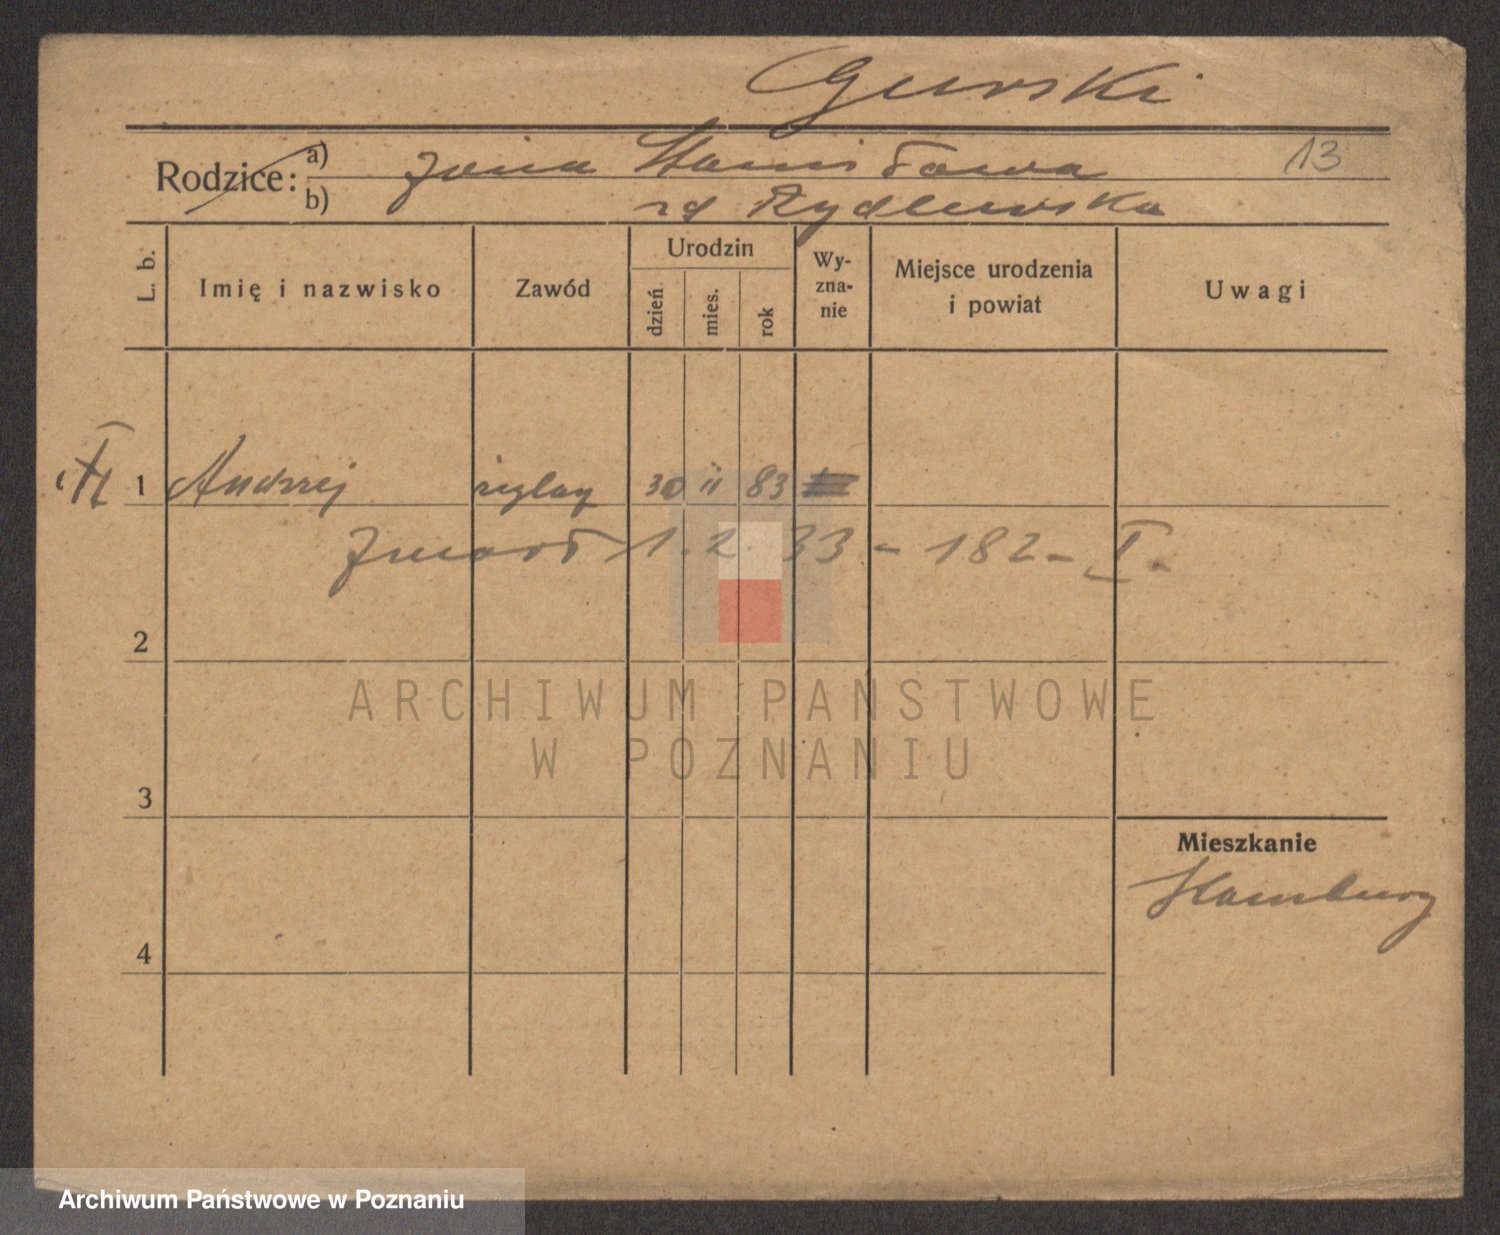 Gurski
Rodzice: a) żona Stanisława 13
b) zd Rydlewska
L. b. Imię i nazwisko Zawód Urodzin dzień mies. rok Wy-zna-nie Miejsce urodzenia i powiat Uwagi
1 Andrzej 30 11 83
Zmarł 1. 2. 33 - 182 - I.
2
3
Mieszkanie
Hamburg
4
ARCHIWUM PAŃSTWOWE
W POZNANIU
Archiwum Państwowe w Poznaniu